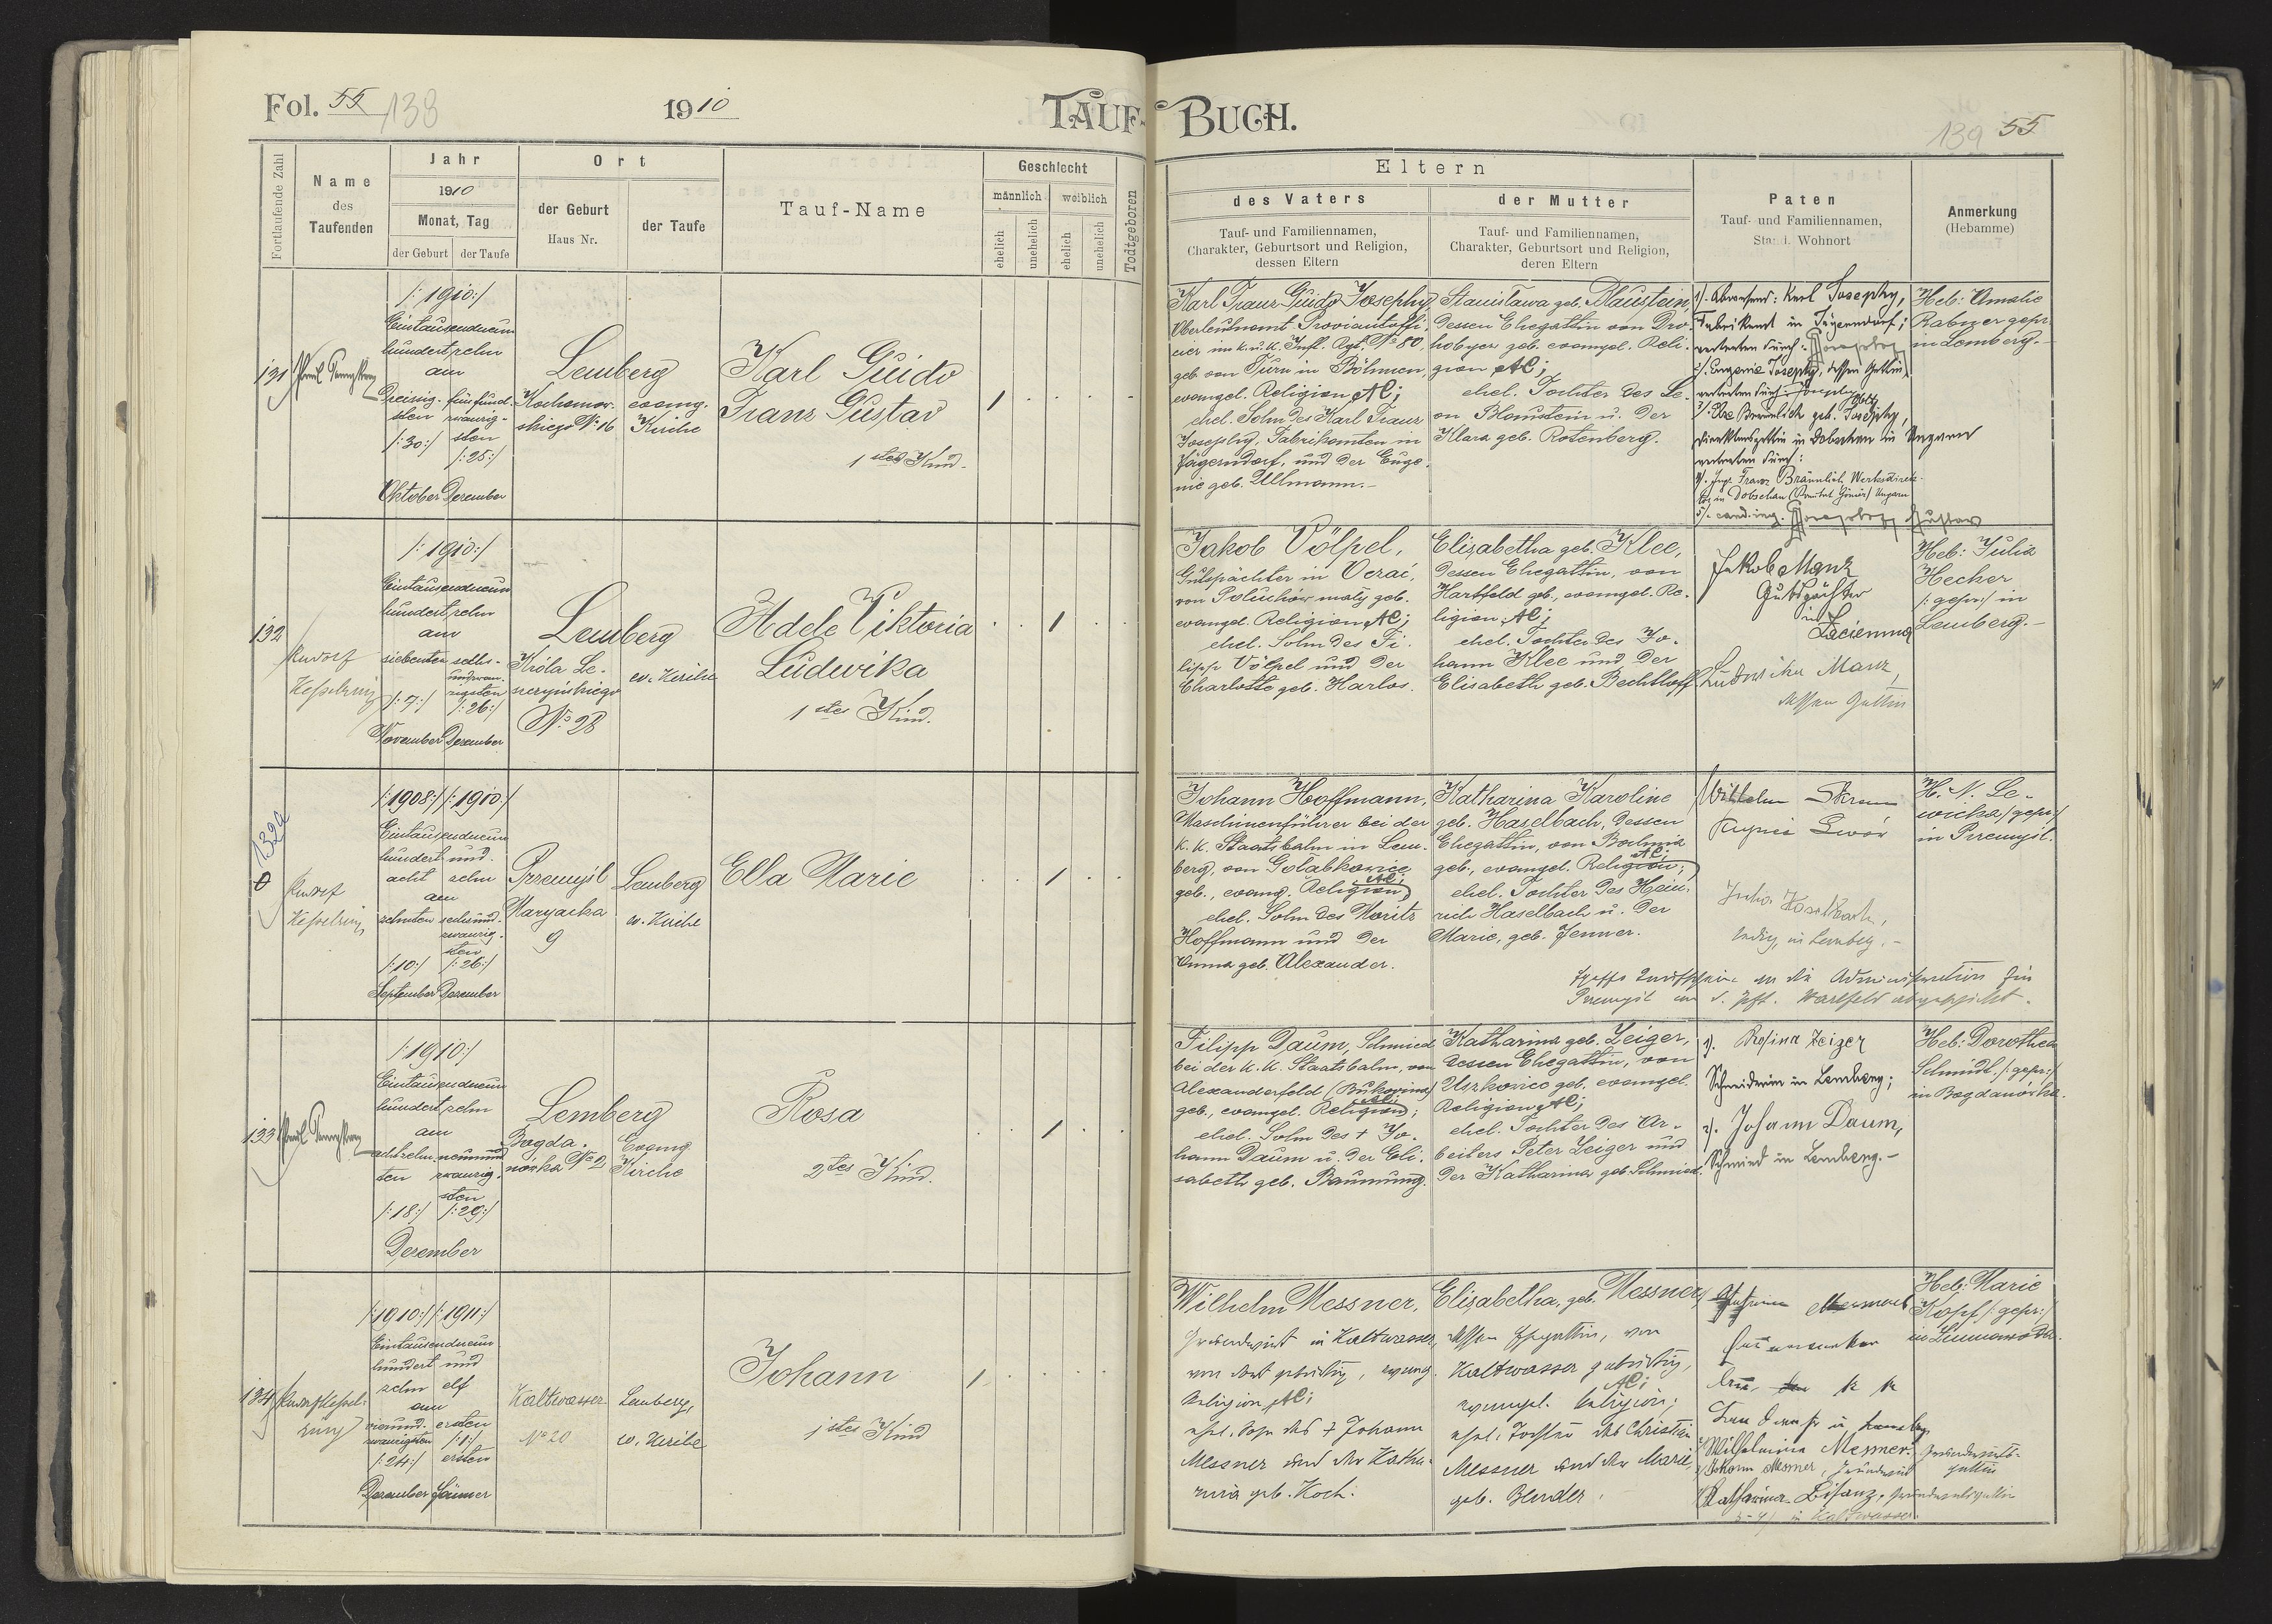 Fol. 55 138
1910
TAUF-
BUCH.
139 55
Fortlaufende Zahl
Name
des
Taufenden
Jahr
1910
Monat, Tag
der Geburt
der Taufe
Ort
der Geburt
Haus Nr.
der Taufe
Tauf-Name
Geschlecht
männlich
weiblich
ehelich
unehelich
ehelich
unehelich
Todtgeboren
Eltern
des Vaters
Tauf- und Familiennamen,
Charakter, Geburtsort und Religion,
dessen Eltern
der Mutter
Tauf- und Familiennamen,
Charakter, Geburtsort und Religion,
deren Eltern
Paten
Tauf- und Familiennamen,
Stand, Wohnort
Anmerkung
(Hebamme)
131
/:1910:/
Eintausendneun
hundert zehn
am
Dreissig-
sten
/:30:/
Oktober
fünfund-
zwanzig-
sten
/:25:/
Dezember
Lemberg
Kochanow-
skiego No 16
evang.
Kirche
Karl Guido
Franz Gustav
1stes Kind.
1
Karl Franz Guido Josephy,
Oberleutnant-Proviantoffi-
cier im k. u. k. Inft. Rgt. No 80,
geb. von Turn in Böhmen,
evangel. Religion AC;
ehel. Sohn des Karl Franz
Josephy, Fabrikanten in
Jägerndorf, und der Euge-
nie geb. Ullmann.-
Stanislawa geb. Blaustein,
dessen Ehegattin von Dro-
hobycz geb. evangel. Reli-
gion AC;
ehel. Tochter des Le-
on Blaustein u. der
Klara geb. Rotenberg.
1/. Abwesend: Karl Josephy,
Fabrikant in Jägerndorf;
vertreten durch:
2/. Eugenie Josephy, dessen Gattin,
vertreten durch:
3/. Else Bräunlich geb. Josephy,
Direktorsgattin in Dobschau in Ungarn
vertreten durch:
4/. Ing. Franz Bräunlich, Werksdirek-
tor in Dobschau (Komitat Gömör) Ungarn
5/. cand. ing.
Heb: Amalie
Rabner gepr.
in Lemberg.-
132
Rudolf
Kesselring
/:1910:/
Eintausendneun
hundert zehn
am
siebenten
/:7:/
November
sechs-
undzwan-
zigsten
/:26:/
Dezember
Lemberg
Króla Le-
szczyńskiego
No 28
ev. Kirche
Adele Viktoria
Ludwika
1stes Kind.
1
Jakob Völpel,
Gutspächter in
von Poluchów mały geb.
evangel. Religion AC;
ehel. Sohn des Fi-
lipp Völpel und der
Charlotte geb. Harlos.
Elisabetha geb. Klee,
dessen Ehegattin, von
Hartfeld geb., evangel. Re-
ligion AC;
ehel. Tochter des Jo-
hann Klee und der
Elisabeth geb. Bechtloff.
Jakob Manz
Gutspächter
in
Ludwika Manz,
dessen Gattin
Heb: Julia
Hecher
/:gepr:/ in
Lemberg.-
132a
0
Rudolf
Kesselring
/:1908:/ /:1910:/
Eintausendneun
hundert und
acht zehn
am
zehnten
/:10:/
September
sechsund-
zwanzig-
sten
/:26:/
Dezember
Przemyśl
Maryacka
9
Lemberg
ev. Kirche
Ella Marie
1
Johann Hoffmann,
Maschinenführer bei der
k. k. Staatsbahn in Lem-
berg, von Gołąbkowice
geb., evang. Religion AC;
ehel. Sohn des Moritz
Hoffmann und der
Anna geb. Alexander.
Katharina Karoline
geb. Haselbach, dessen
Ehegattin, von Bochnia
geb., evangel. Religion AC;
ehel. Tochter des Hein-
rich Haselbach u. der
Marie, geb. Jenner.
Wilhelm
Julia Haselbach,
ledig, in Lemberg.-
H. N. Le-
wicka /gepr:/
in Przemyśl.
133
/:1910:/
Eintausendneun
hundert zehn
am
achtzehn-
ten
/:18:/
neunund-
zwanzig-
sten
/:29:/
Dezember
Lemberg
Bogda-
nówka No 2
Evang.
Kirche
Rosa
2tes Kind.
1
Filipp Daum, Schmied
bei der k. k. Staatsbahn, von
Alexanderfeld (Bukovina)
geb., evangel. Religion AC;
ehel. Sohn des + Jo-
hann Daum u. der Eli-
sabeth geb. Baumung.
Katharina geb. Zeiger,
dessen Ehegattin, von
Uszkowice geb. evangel.
Religion AC;
ehel. Tochter des Ar-
beiters Peter Zeiger und
der Katharina geb. Schmied.
1/. Rosina Zeiger
Schneiderin in Lemberg;
2/. Johann Daum,
Schmied in Lemberg.-
Heb: Dorothea
Schmidt /:gepr:/
in Bogdanówka.
134
Rudolf Kessel-
ring
/:1910:/ /:1911:/
Eintausendneun
hundert und
zehn elf
am
vierund-
zwanzigsten
/:24:/
Dezember
ersten
/:1:/
ersten
Jänner
Kaltwasser
No 20
Lemberg,
ev. Kirche
Johann
1stes Kind
1
Wilhelm Messner,
Grundwirt in Kaltwasser,
von dort gebürtig, evang.
Religion AC;
ehel. Sohn des + Johann
Messner und der Katha-
rina geb. Koch.
Elisabetha, geb. Messner,
dessen Ehegattin, von
Kaltwasser gebürtig,
evangel. Religion AC;
ehel. Tochter des Christian
Messner und der Marie,
geb. Bender.
Wilhelmina Messner, Grundwirts-
gattin
Johann Messner, Grundwirt
Katharina Bisanz, Grundwirtsgattin
2-4/ in Kaltwasser.
Heb: Marie
Kopf /:gepr:/
in